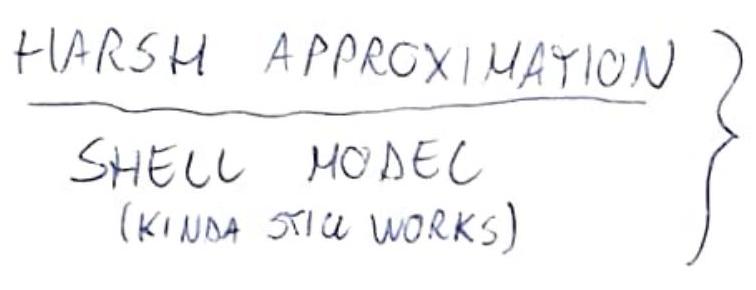 HARSH APPROXIMATION
SHELL MODEL
(KINDA STILL WORKS)